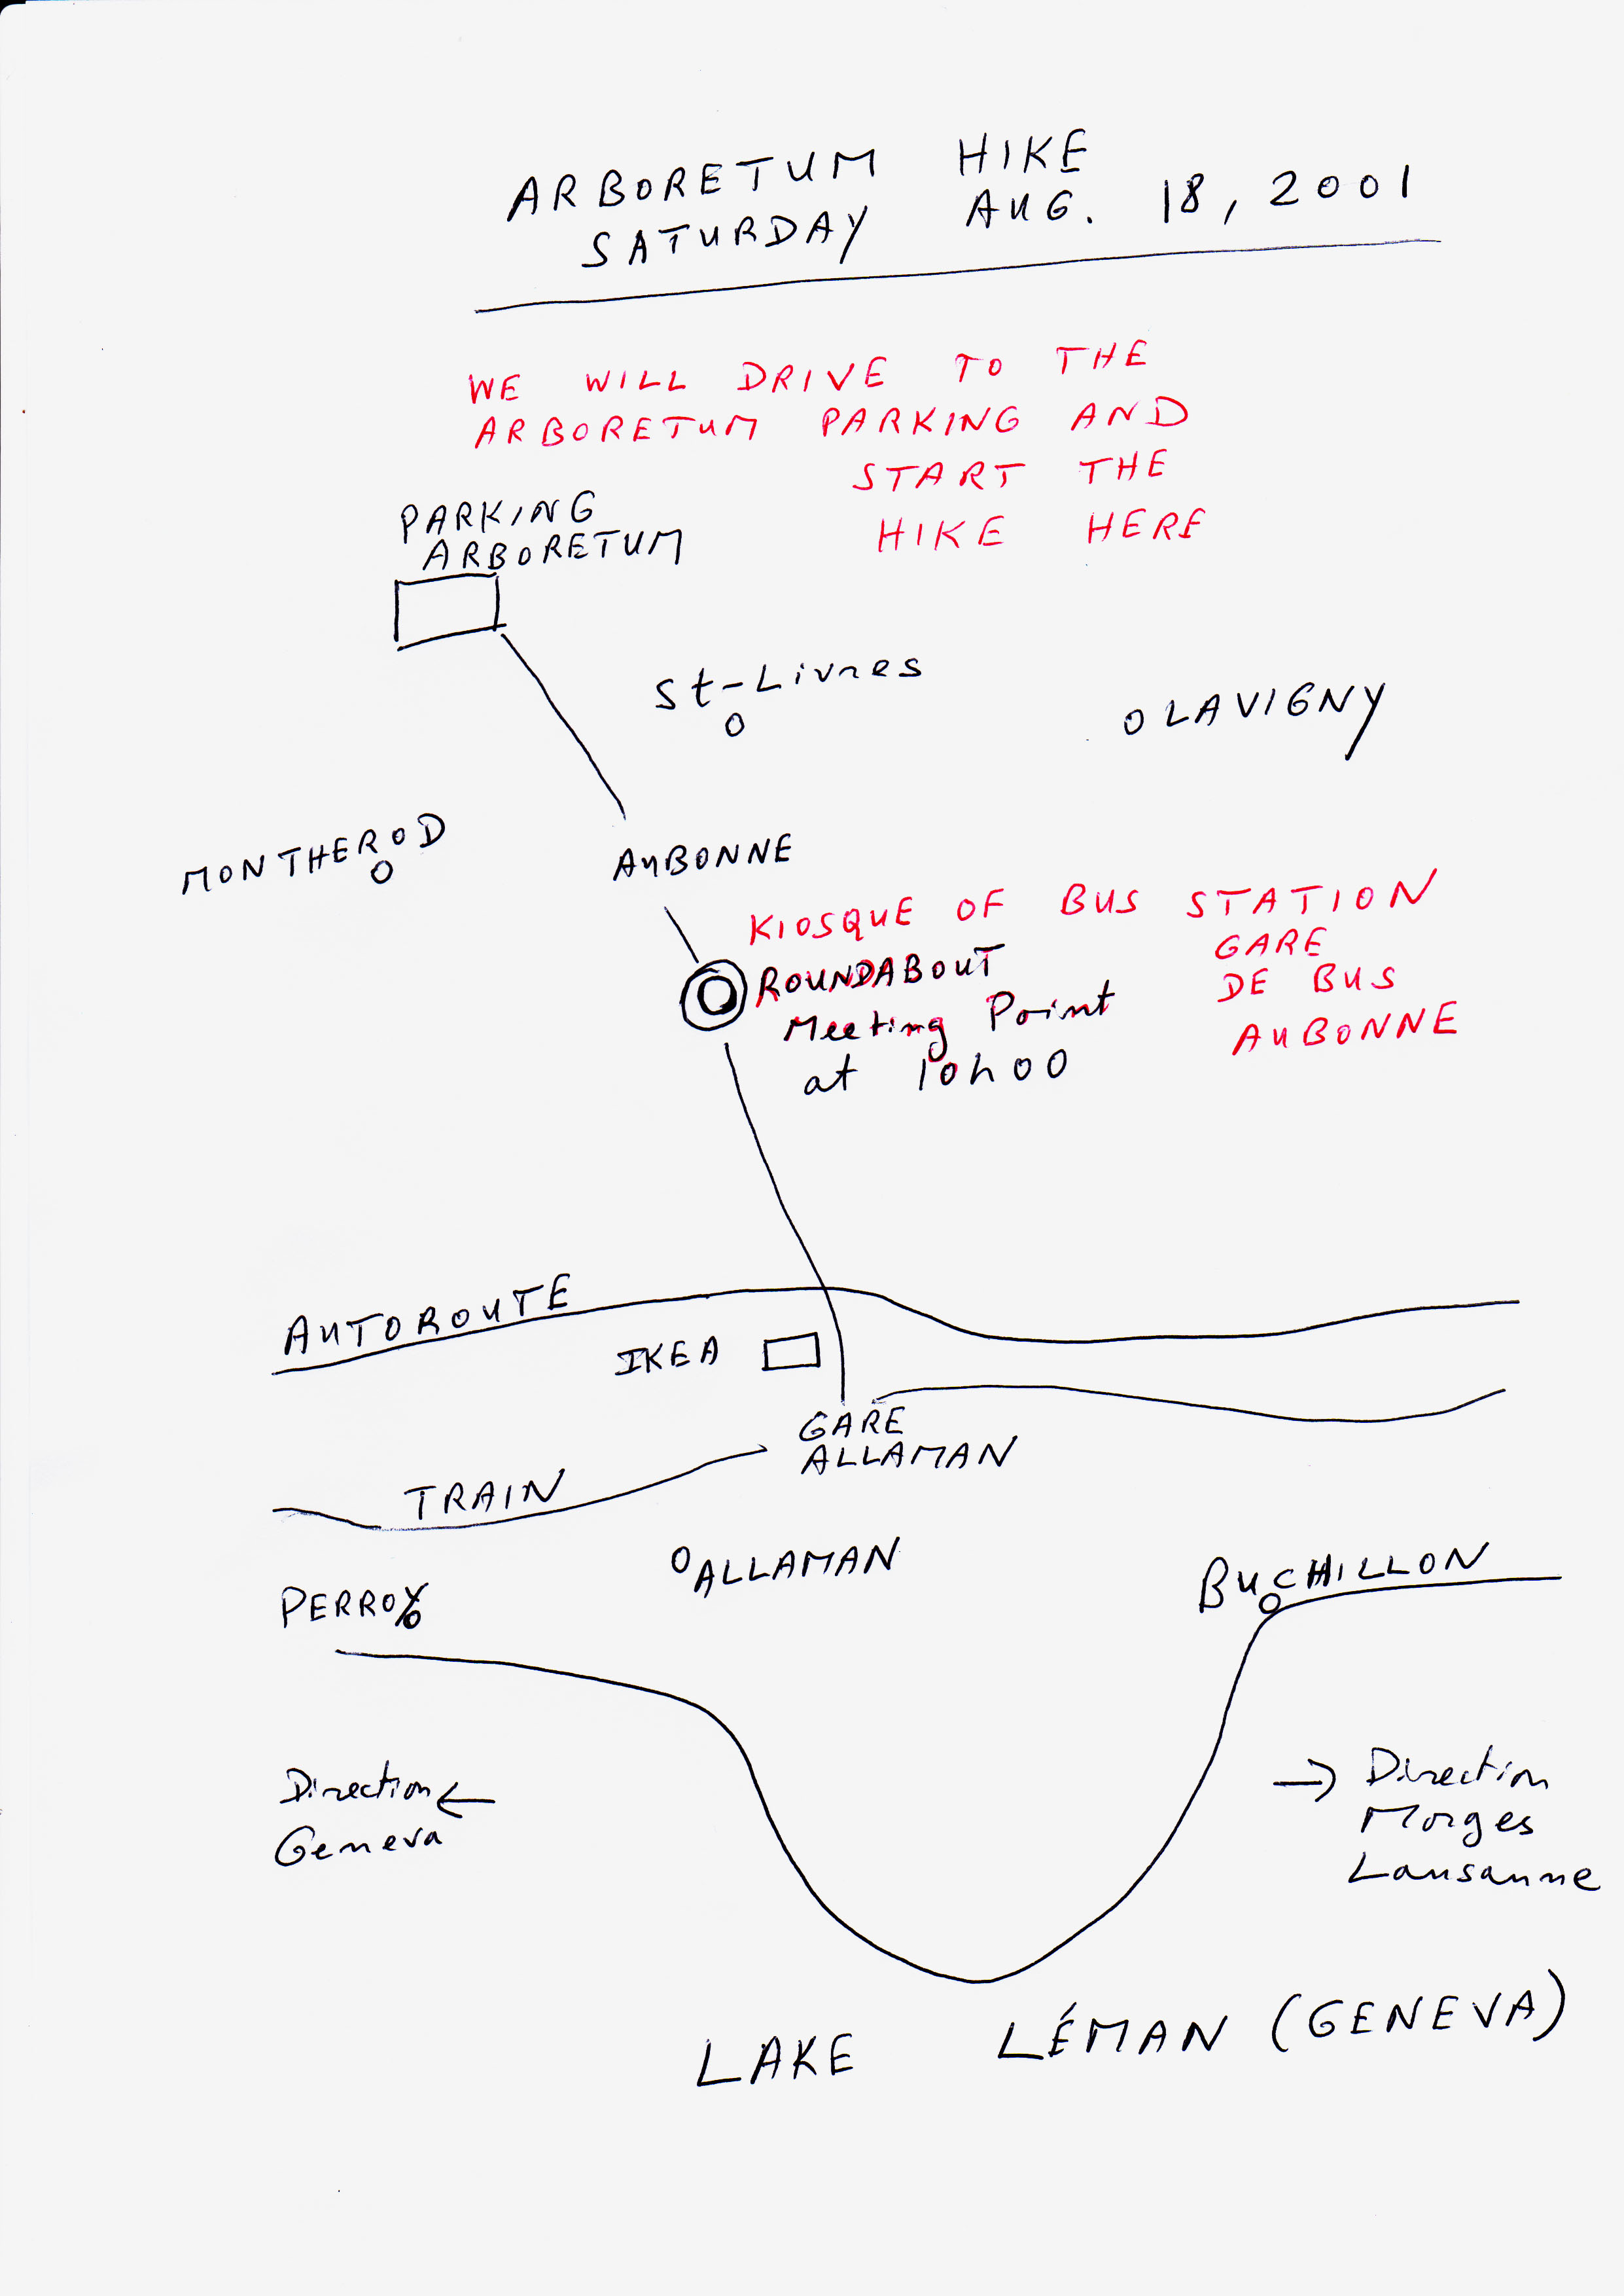 ARBORETUM HIKE
SATURDAY AUG. 18, 2001
WE WILL DRIVE TO THE
ARBORETUM PARKING AND
START THE
HIKE HERE
PARKING
ARBORETUM
St-Livres
LAVIGNY
MONTHEROD
AUBONNE
KIOSQUE OF BUS STATION
GARE
DE BUS
AUBONNE
ROUNDABOUT
Meeting Point
at 10h00
AUTOROUTE
IKEA
GARE
ALLAMAN
TRAIN
ALLAMAN
BUCHILLON
PERROY
Direction
Geneva
Direction
Morges
Lausanne
LAKE LÉMAN (GENEVA)